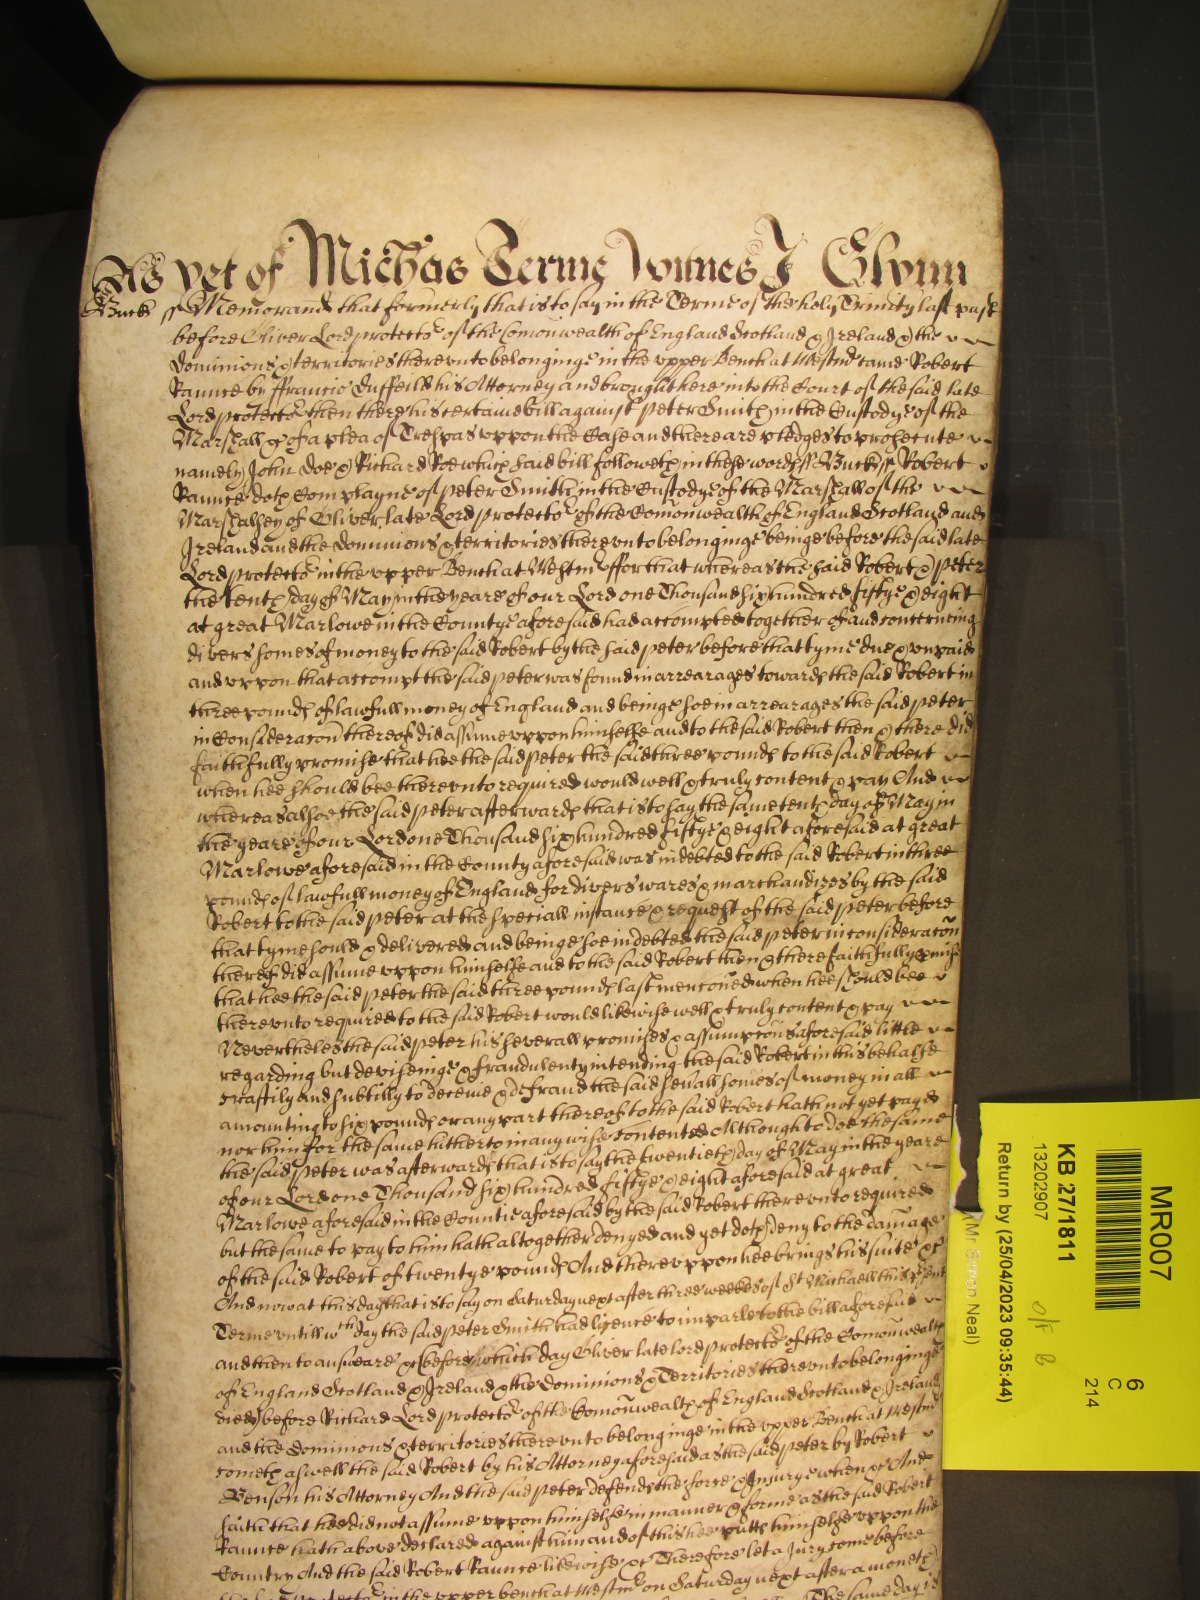 As yet of Michas Terme Wittnes J Glynn
Buck ss Memorand that formerly that is to say in the Terme of the holy Trinity last past
before Oliver Lord protector of the Comonwealth of England Scotland & Ireland & the
dominions & territories therevnto belonginge in the vpper Bench at Westmr came Robert
Raunce by ffrancis Duffeild his Attorney and brought here into the Court of the said late
Lord protector then there his certaine bill against Peter Smith in the Custodye of the
Marshall &c of a plea of Trespas vppon the Case and there are pledges to prosecute
namely John Doe & Richard Roe which said bill followeth in these words ss Buck ss Robert
Raunce doth Complayne of Peter Smith in the Custodye of the Marshall of the
Marshalsey of Oliver late Lord protector of the Comonwealth of England Scotland and
Ireland and the dominions & territories therevnto belonginge beinge before the said late
Lord protector in the vpper Bench at Westmr ffor that whereas the said Robert & Peter
the tenth day of May in the yeare of our Lord one Thousand six hundred fiftye & eight
at great Marlowe in the Countye aforesaid had accompted together of and concerning
divers somes of money to the said Robert by the said Peter before that tyme due & vnpaid
and vppon that accompt the said Peter was found in arrearages towards the said Robert in
three pounds of lawfull money of England and beinge soe in arrearages the said Peter
in Consideracon thereof did assume vppon himselfe and to the said Robert then & there did
faithfully promise that hee the said Peter the said three pounds to the said Robert
when hee should bee therevnto required would well & truly content & pay And
whereas alsoe the said Peter afterwards that is to say the same tenth day of May in
the yeare of our Lord one Thousand six hundred fiftye & eight aforesaid at great
Marlowe aforesaid in the County aforesaid was indebted to the said Robert in three
pounds of lawfull money of England for divers wares & marchandizes by the said
Robert to the said Peter at the speciall instance & request of the said Peter before
that tyme sould & delivered and beinge soe indebted the said Peter in consideracon
thereof did assume vppon himselfe and to the said Robert then & there faithfully pmise
that hee the said Peter the said three pounds last menconed when hee should bee
therevnto required to the said Robert would likewise well & truly content & pay
Neverthelesse the said Peter his severall promises & assumpcons aforesaid little
regarding but deviseinge & fraudulently intending the said Robert in this behalfe
craftily and subtilly to deceive & defraud the said seuall somes of money in all
amounting to six pounds or any part thereof to the said Robert hath not yet payed
nor him for the same hitherto in any wise contented Although to doe the same
the said Peter was afterwards that is to say the twentieth day of May in the yeare
of our Lord one Thousand six hundred fiftye & eight aforesaid at great
Marlowe aforesaid in the Countie aforesaid by the said Robert therevnto required
but the same to pay to him hath altogether denyed and yet doth deny to the damage
of the said Robert of twentye pounds And therevppon hee brings his suite &c
And now at this day that is to say on Saturday next after three weekes of St Michaell this psent
Terme vntill wch day the said Peter Smith had licence to imparle to the bill aforesaid
and then to answeare &c before which day Oliver late lord protector of the Comonwealth
of England Scotland & Ireland & the Dominions & Territories therevnto belonginge
died before Richard Lord protector of the Comonwealth of England Scotland & Ireland
and the Dominions & territories therevnto belonginge in the vpper Bench at Westmr
cometh aswell the said Robert by his Attorney aforesaid as the said Peter by Robert
Benson his Attorney And the said Peter defends the force & Injury when &c And
saith that hee did not assume vppon himselfe in manner & forme as the said Robert
Raunce hath above declared against him and of this hee putts himselfe vppon the
Country And the said Robert Raunce likewise &c Therefore let a Jury come before
the lord protector in the vpper bench at Westmr on Saturday next after a moneth
The same day is
MR007
6
C
214
KB 27/1811
13202907
O/F B
Return by (25/04/2023 09:35:44)
Neal)